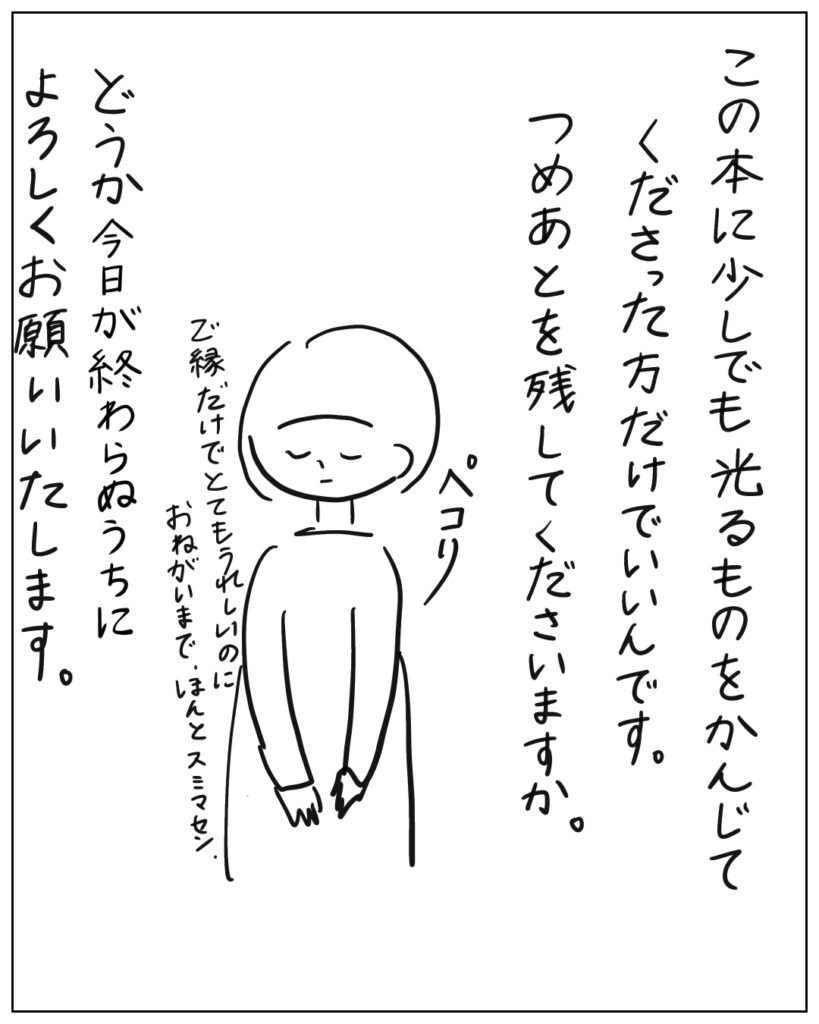 この本に少しでも光るものをかんじて
くださった方だけでいいんです。
つめあとを残してくださいますか。
ペコリ
ご縁だけでとてもうれしいのに
おねがいまで、ほんとスミマセン.
どうか今日が終わらぬうちに
よろしくお願いいたします。